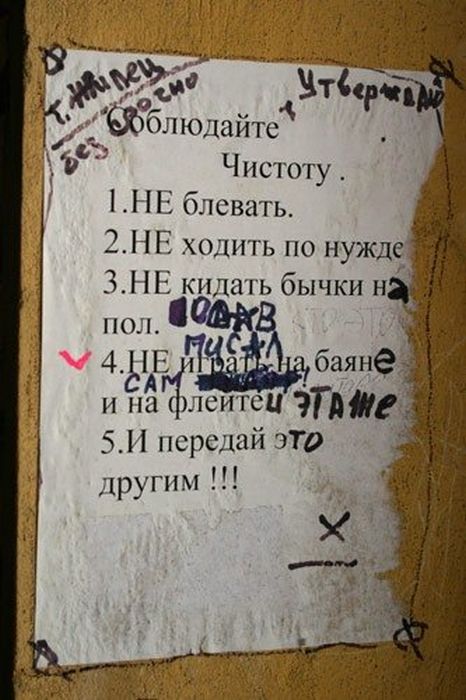 т. Жилец
Утвержд
без срочно
Соблюдайте
Чистоту .
1.НЕ блевать.
2.НЕ ходить по нужде
3.НЕ кидать бычки на
пол.
писал
4.НЕ играть на баяне
САМ !
и на флейте и ЭТАЖЕ
5.И передай это
другим !!!
X